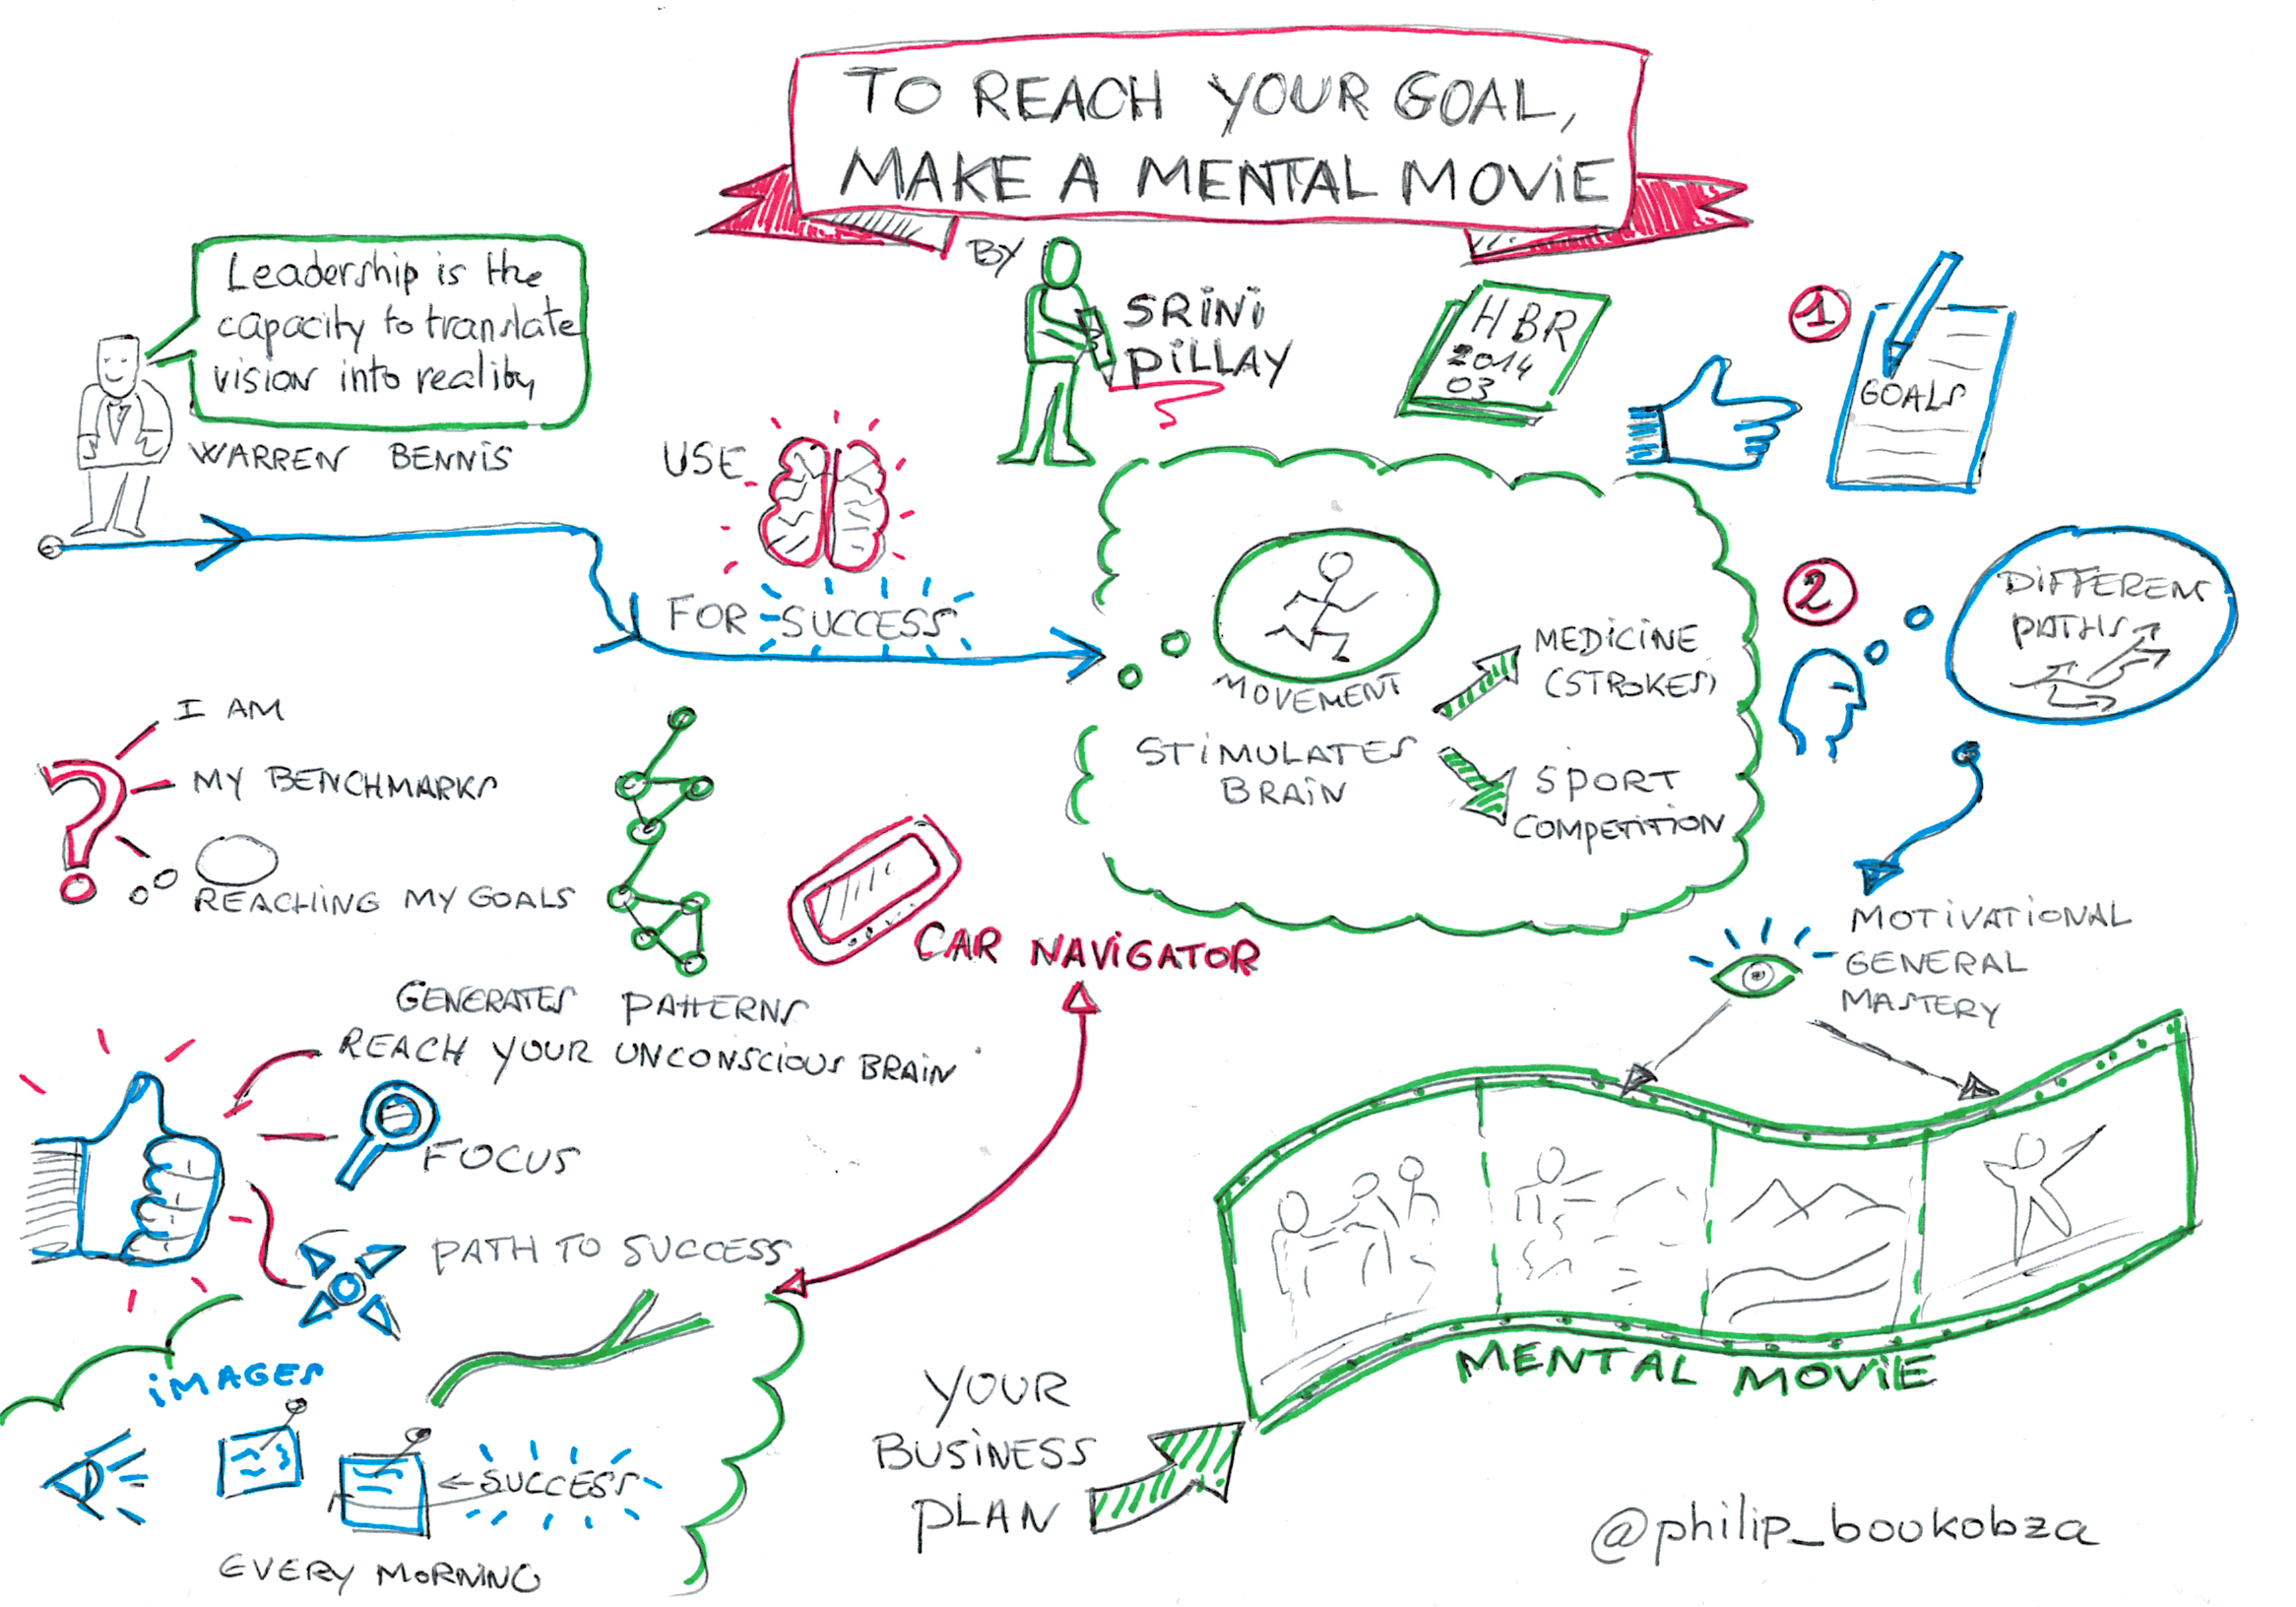 TO REACH YOUR GOAL,
MAKE A MENTAL MOVIE
BY
SRINI
PILLAY
HBR
2014
03
Leadership is the
capacity to translate
vision into reality
WARREN BENNIS
USE
FOR SUCCESS
MOVEMENT
STIMULATES
BRAIN
MEDICINE
(STROKES)
SPORT
COMPETITION
1
GOALS
2
DIFFERENT
PATHS
MOTIVATIONAL
GENERAL
MASTERY
I AM
MY BENCHMARKS
REACHING MY GOALS
GENERATES PATTERNS
CAR NAVIGATOR
REACH YOUR UNCONSCIOUS BRAIN
FOCUS
PATH TO SUCCESS
IMAGES
SUCCESS
EVERY MORNING
YOUR
BUSINESS
PLAN
MENTAL MOVIE
@philip_boukobza